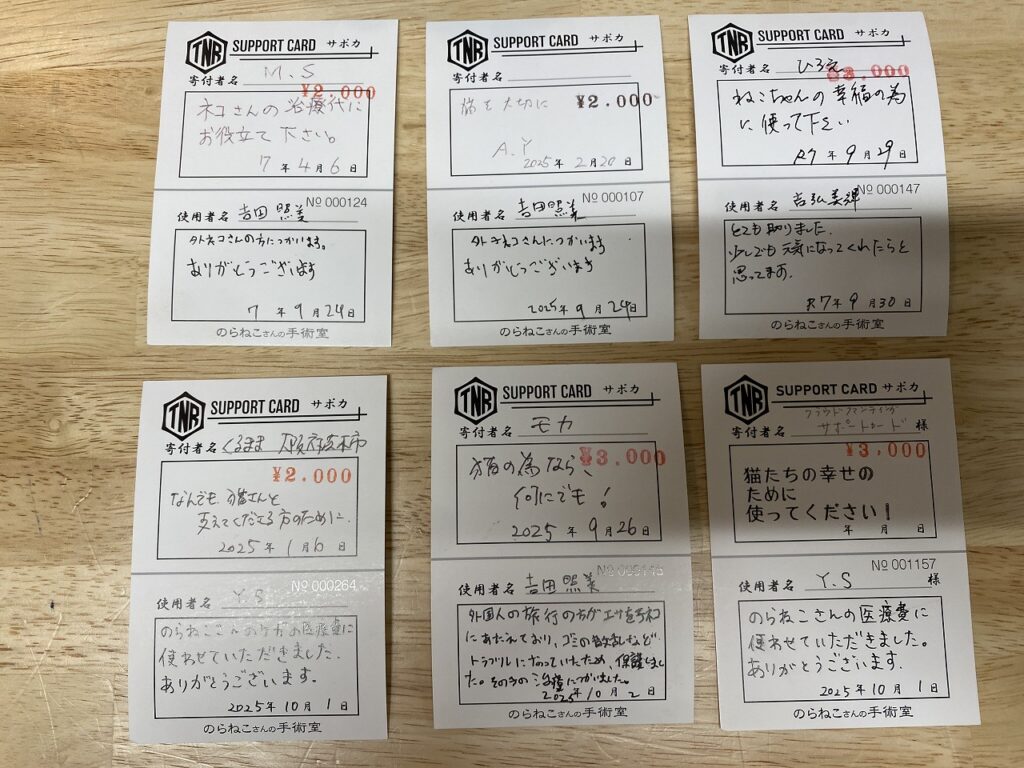 TNR SUPPORT CARD サポカ
寄付者名 M.S
¥2,000
ネコさんの治療代に
お役立て下さい。
7年4月6日
No 000124
使用者名 吉田照美
外ネコさんの方につかいます。
ありがとうございます
7年9月24日
のらねこさんの手術室
TNR SUPPORT CARD サポカ
寄付者名
猫を大切に ¥2,000
A.Y
2025年2月20日
No 000107
使用者名 吉田照美
外ネコさんにつかいます
ありがとうございます
2025年9月24日
のらねこさんの手術室
TNR SUPPORT CARD サポカ
寄付者名 ひろえ
¥3,000
ねこちゃんの幸福の為
に使って下さい
R7年9月29日
No 000147
使用者名 吉弘美
とても助りました。
少しでも元気になってくれたらと
思ってます。
R7年9月30日
のらねこさんの手術室
TNR SUPPORT CARD サポカ
寄付者名 くるまま 大阪府茨木市
¥2,000
なんでも。猫さんと
支えてくださる方のために。
2025年1月6日
No 000264
使用者名 Y.S
のらねこさんのケガの医療費に
使わせていただきました。
ありがとうございます。
2025年10月1日
のらねこさんの手術室
TNR SUPPORT CARD サポカ
寄付者名 モカ
¥3,000
猫の為なら、
何にでも!
2025年9月26日
使用者名 吉田照美
外国人の旅行の方がエサを
にあたえており、ゴミの など
トラブルになっていたため、保護しまし
た。その子の治療につかいました。
2025年10月2日
のらねこさんの手術室
TNR SUPPORT CARD サポカ
クラウドファンディング
寄付者名 サポートカード 様
¥3,000
猫たちの幸せの
ために
使ってください!
年 月 日
No 001157
使用者名 Y.S 様
のらねこさんの医療費に
使わせていただきました。
ありがとうございます。
2025年10月1日
のらねこさんの手術室